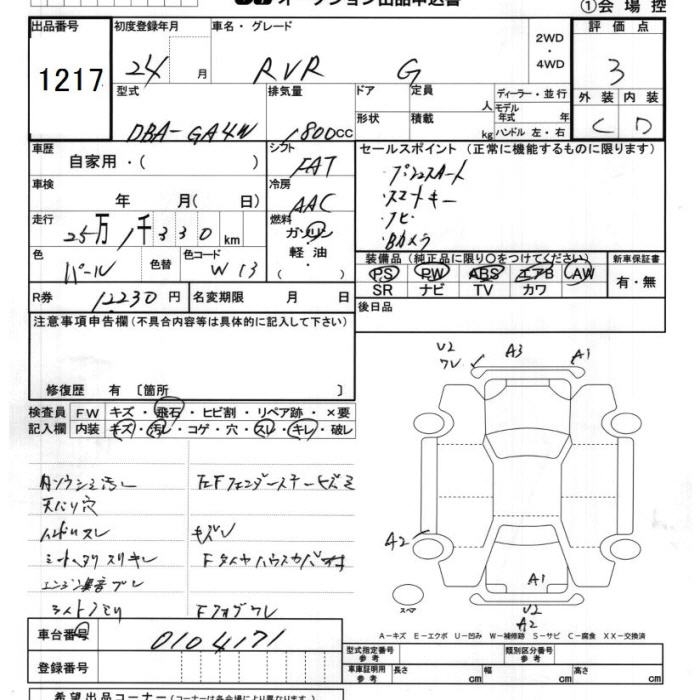 オークション出品申込書
①会場控
出品番号
1217
初度登録年月
24 月
車名・グレード
RVR G
2WD・4WD
評価点
3
型式
DBA-GA4W
排気量
1800cc
ドア
定員 人
ディーラー・並行
モデル年式 年
形状
積載 kg
ハンドル 左・右
外装 内装
C D
車歴
自家用・( )
シフト
FAT
セールスポイント (正常に機能するものに限ります)
・プッシュスタート
・スマートキー
・ナビ
・Bカメラ
車検
年 月( 日)
冷房
AAC
走行
25万1千330km
燃料
ガソリン
軽油
・( )
色
パール
色替
色コード
W13
装備品 (純正品に限り○をつけてください)
PS PW ABS エアB AW
SR ナビ TV カワ
新車保証書
有・無
R券 12230円
名変期限 月 日
後日品
注意事項申告欄(不具合内容等は具体的に記入して下さい)
修復歴 有 〔箇所 〕
U2
ワレ
A3
A1
検査員記入欄
FW キズ・飛石・ヒビ割・リペア跡・×要
内装 キズ・汚レ・コゲ・穴・スレ・キレ・破レ
内ソウシミ汚レ
天バリ穴
ハンドルスレ
シートヘタリスリキレ
エンジン異音ブレ
左Fフェンダーステーキズミ
キズレ
FタイヤハウスカバーH
Fフォグワレ
A2
A1
スペア
U2
A2
A-キズ E-エクボ U-凹み W-補修跡 S-サビ C-腐食 XX-交換済
車台番号
0104171
登録番号
型式指定番号 参考
類別区分番号 参考
車庫証明用 参考
長さ cm
幅 cm
高さ cm
希望出品コーナー(コーナーは各会場により異なります)